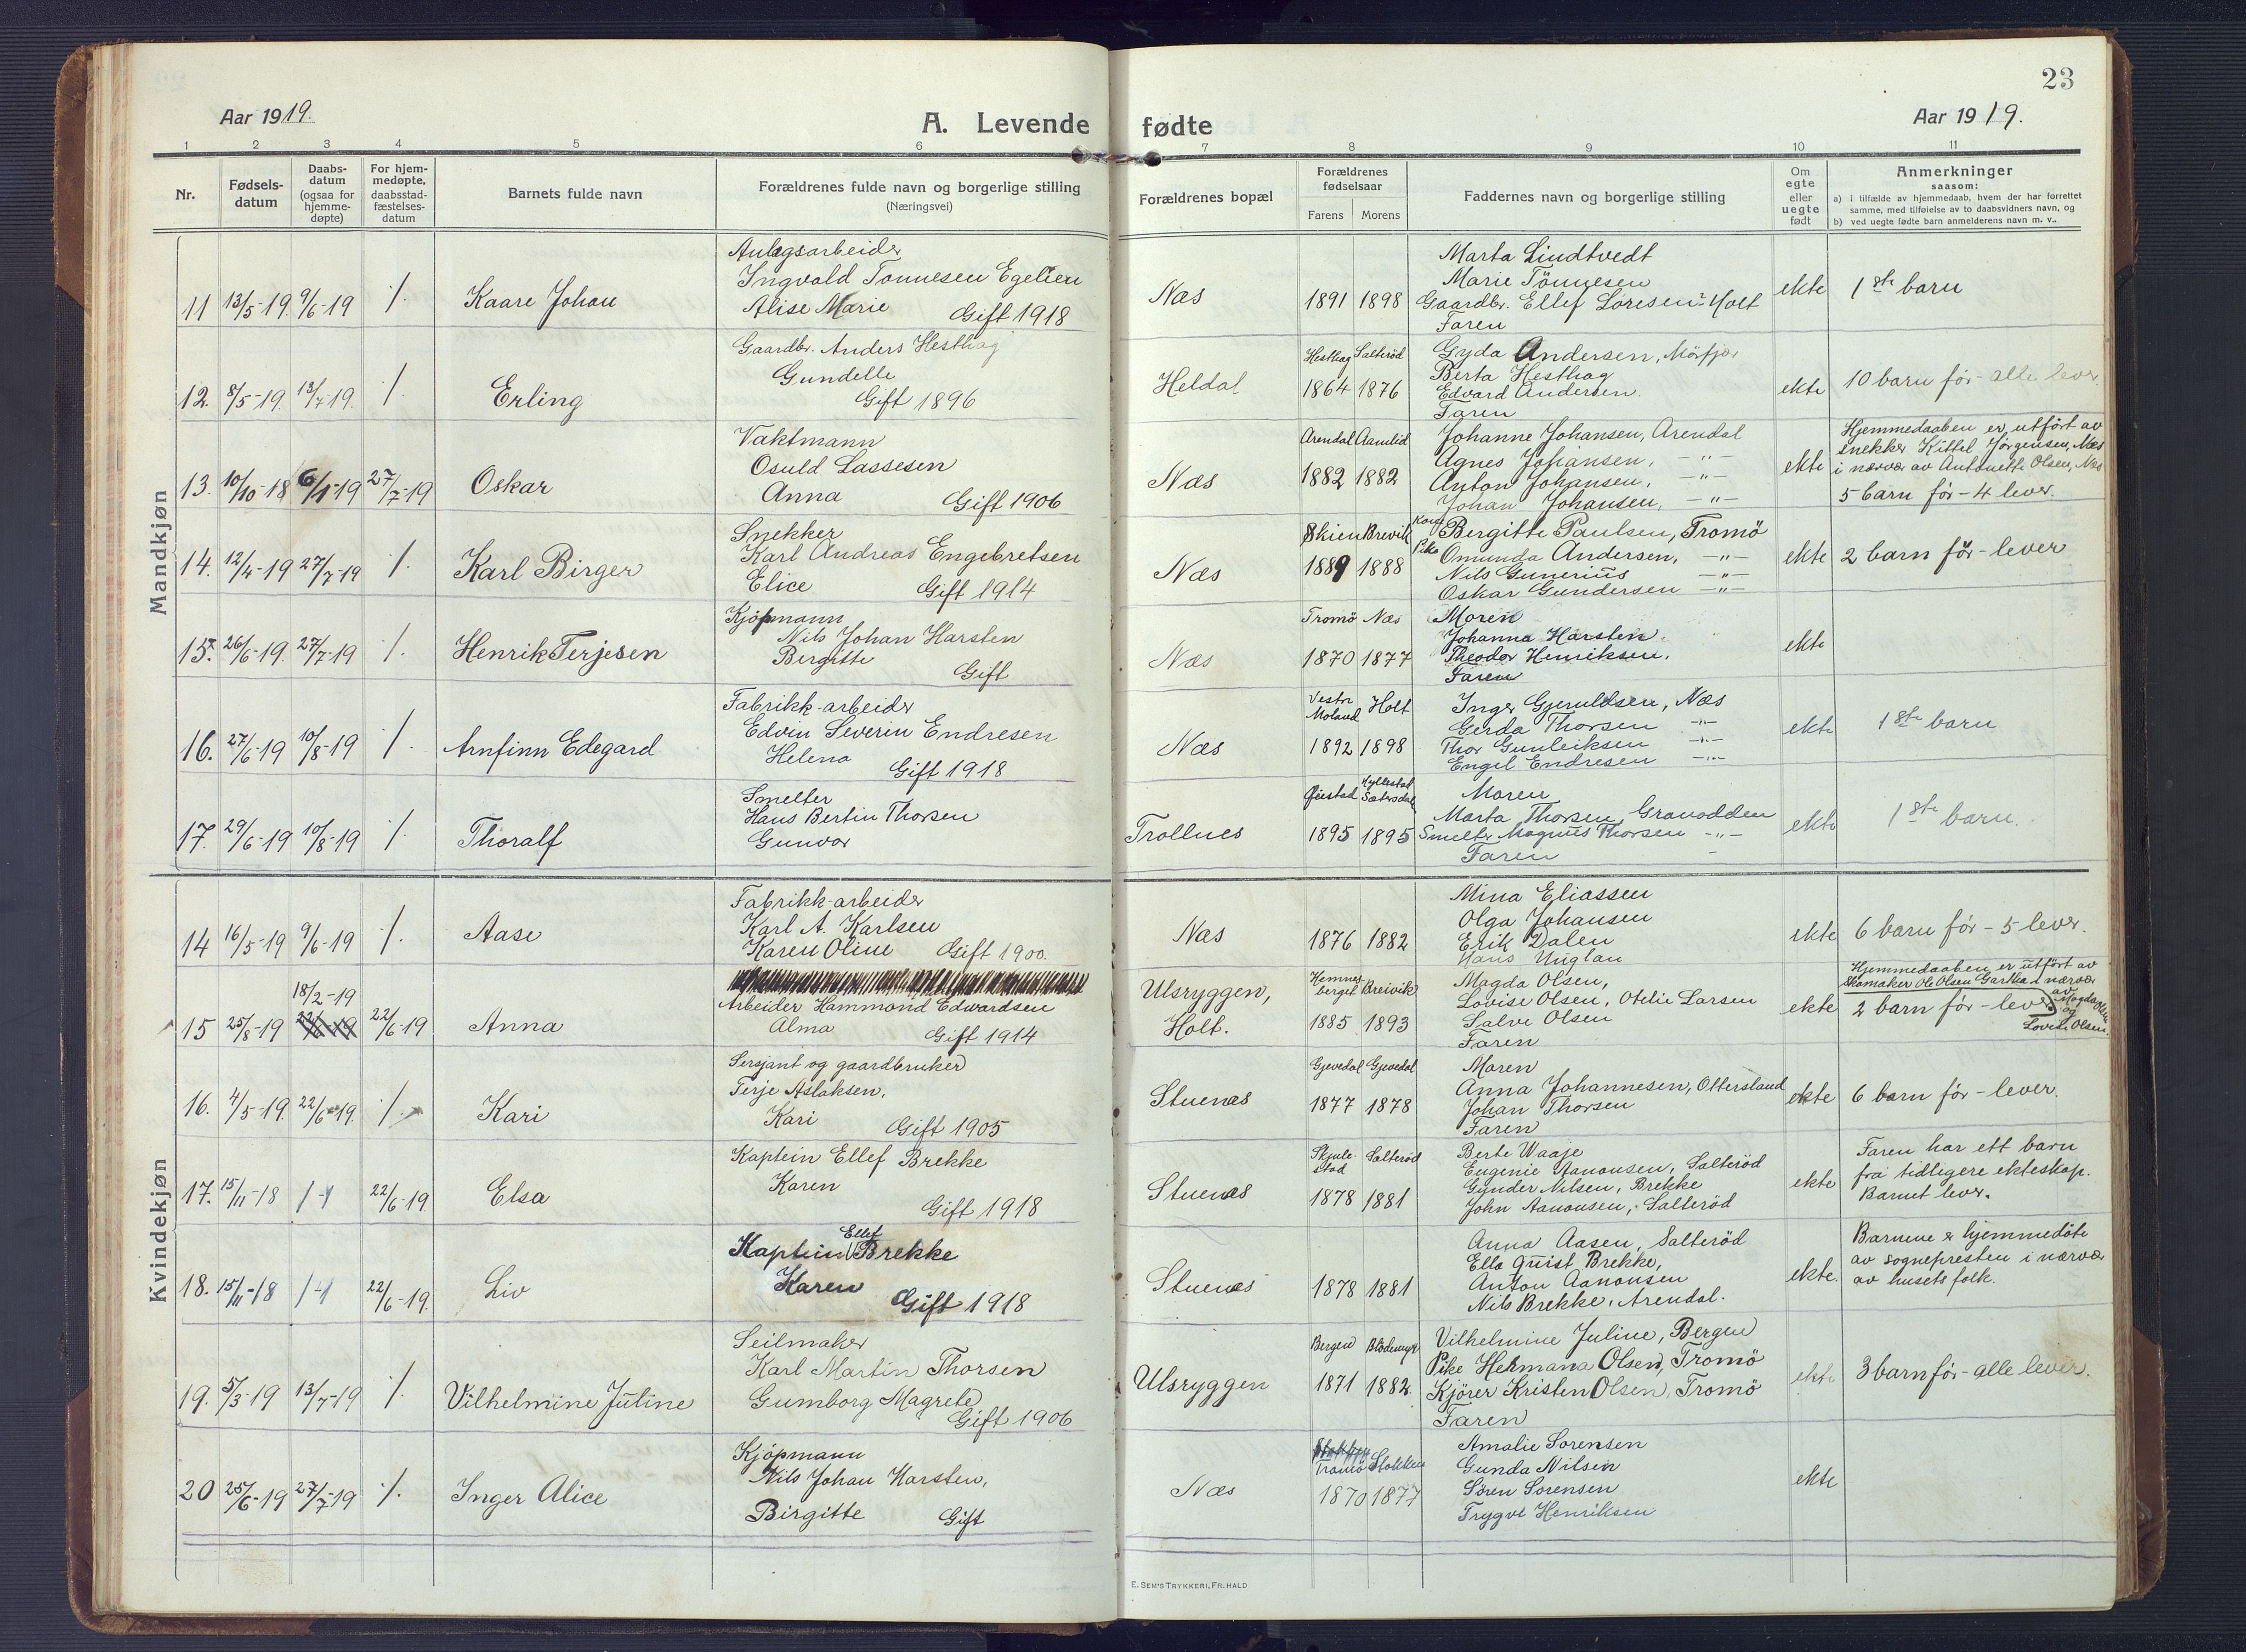 23
Aar 1919.
A. Levende fødte
Aar 1919.
1 2 3 4 5 6 7 8 9 10 11
Nr.
Fødsels-
datum
Daabs-
datum
(ogsaa for
hjemme-
døpte)
For hjem-
medøpte,
daabsstad-
fæstelses-
datum
Barnets fulde navn
Forældrenes fulde navn og borgerlige stilling
(Næringsvei)
Forældrenes bopæl
Forældrenes
fødselsaar
Farens Morens
Faddernes navn og borgerlige stilling
Om
egte
eller
uegte
født
Anmerkninger
saasom:
a) i tilfælde av hjemmedaab, hvem der har forrettet
samme, med tilføielse av to daabsvidners navn, og
b) ved uegte fødte barn anmelderens navn m. v..
Mandkjøn
11 13/5-19. 9/6-19 /. Kaare Johan
Anlægsarbeider
Ingvald Tønnesen Egelien
Alise Marie Gift 1918
Næs
1891 1898
Marta Lindtvedt
Marie Tönnesen
Gaardbr. Ellef Loresen Holt
Faren
ekte
1ste barn
12. 8/5-19. 13/7-19. /. Erling
Gaardbr. Anders Hesthag
Gundelle
Gift 1896
Heldal
Hesthag Salteröd
1864 1876
Gyda Andersen, Mörfjær
Berta Hesthag
Edvard Andersen.
Faren
ekte
10 barn för - alle lever.
13. 10/10-18 6/1-19 27/7-19 Oskar
Vaktmann
Osuld Lassesen
Anna Gift 1906
Næs
Arendal Aamlid
1882 1882
Johanne Johansen, Arendal
Agnes Johansen, -"-
Anton Johansen, -"-
Johan Johansen, -"-
ekte
Hjemmedaaben er utfört av
snekker Kittel Jörgensen, Næs
i nærvær av Antonette Olsen, Næs
5 barn för - 4 lever.
14. 12/4-19 27/7-19 /. Karl Birger
Snekker
Karl Andreas Engebretsen
Elice Gift 1914
Næs
Skien Brevik
1889 1888
Kone Bergitte Paulsen, Tromö
Pike Omunda Andersen, -"-
Nils Gunerius -"-
Oskar Gundersen -"-
ekte
2 barn för - lever
15. 26/6-19. 27/7-19 /. Henrik Terjesen
Kjöpmann
Nils Johan Harsten
Bergitte
Gift
Næs
Tromö Næs
1870 1877
Moren
Johanna Harsten.
Theodor Henriksen.
Faren
ekte
16. 27/6-19 10/8-19 /. Arnfinn Edegard
Fabrikk-arbeider
Edvin Severin Endresen
Helena Gift 1918
Næs
Vestre
Moland Holt
1892 1898
Inger Gjeruldsen, Næs
Gerda Thorsen -"-
Thor Gunleiksen -"-
Engel Endresen -"-
ekte
1ste barn
17. 29/6-19 10/8-19 /. Thoralf
Smelter
Hans Bertin Thorsen
Gunvor
Trollnes
Øiestad Hyllestad
Sætersdal
1895 1895
Moren
Marta Thorsen, Granodden
Smelter Magnus Thorsen -"-
Faren
ekte
1ste barn.
Kvindekjøn
14 16/5-19 9/6-19 /. Aase
Fabrikk-arbeider
Karl A. Karlsen
Karen Oline Gift 1900.
Næs
1876 1882
Mina Eliassen
Olga Johansen
Erik Dalen
Hans Uuglan
ekte
6 barn för - 5 lever.
18/2-19
15 25/8-19 22/6-19 22/6-19 Anna
Arbeider Hammond Edwardsen
Alma Gift 1914
Ulsryggen,
Holt.
Hemnes-
berget Breivik
1885 1893
Magda Olsen,
Lovise Olsen, Otelie Larsen
Salve Olsen
Faren
ekte
Hjemmedaaben er utfört av
Skomaker Ole Olsen Garthaa i nærvær
av Magda Olsen
og
Lovise Olsen.
2 barn för - lever
16. 4/5-19. 22/6-19. /. Kari
Sersjant og gaardbruker
Terje Aslaksen,
Kari Gift 1905
Stuenæs
Gjevedal Gjevedal
1877 1878
Moren
Anna Johannesen, Ottersland
Johan Thorsen
Faren
ekte
6 barn för - lever.
17. 15/11-18 1-1 22/6-19 Elsa
Kaptein Ellef Brekke
Karen
Gift 1918
Stuenæs
Skjule-
stad Salteröd
1878 1881
Berte Waaje
Eugenie Aanonsen, Salteröd
Gunder Nilsen, Brekke
John Aanonsen, Salteröd
ekte
Faren har ett barn
fra tidligere ekteskap.
Barnet lever.
18. 15/11-18 1-1 22/6-19. Liv
Kaptein Ellef Brekke
Karen
Gift 1918
Stuenæs
1878 1881
Anna Aasen, Salteröd
Ella Quist Brekke,
Anton Aanonsen
Nils Brekke, Arendal.
ekte.
Barnene er hjemmedöte
av sognepresten i nærvær
av husets folk.
19. 5/3-19 13/7-19 /. Vilhelmine Juline
Seilmaker
Karl Martin Thorsen
Gumborg Magrete
Gift 1906
Ulsryggen
Bergen Blödemyr
1871 1882.
Vilhelmine Juline, Bergen
Pike Hermana Olsen, Tromö
Kjörer Kristen Olsen, Tromö
Faren
ekte
3 barn för - alle lever.
20 25/6-19 27/7-19 /. Inger Alice
Kjöpmann
Nils Johan Harsten,
Birgitte Gift
Næs
Tromö Stokken
1870 1877
Amalie Sorensen
Gunda Nilsen
Sören Sorensen
Trygve Henriksen
ekte
E. SEM'S TRYKKERI, FR.HALD